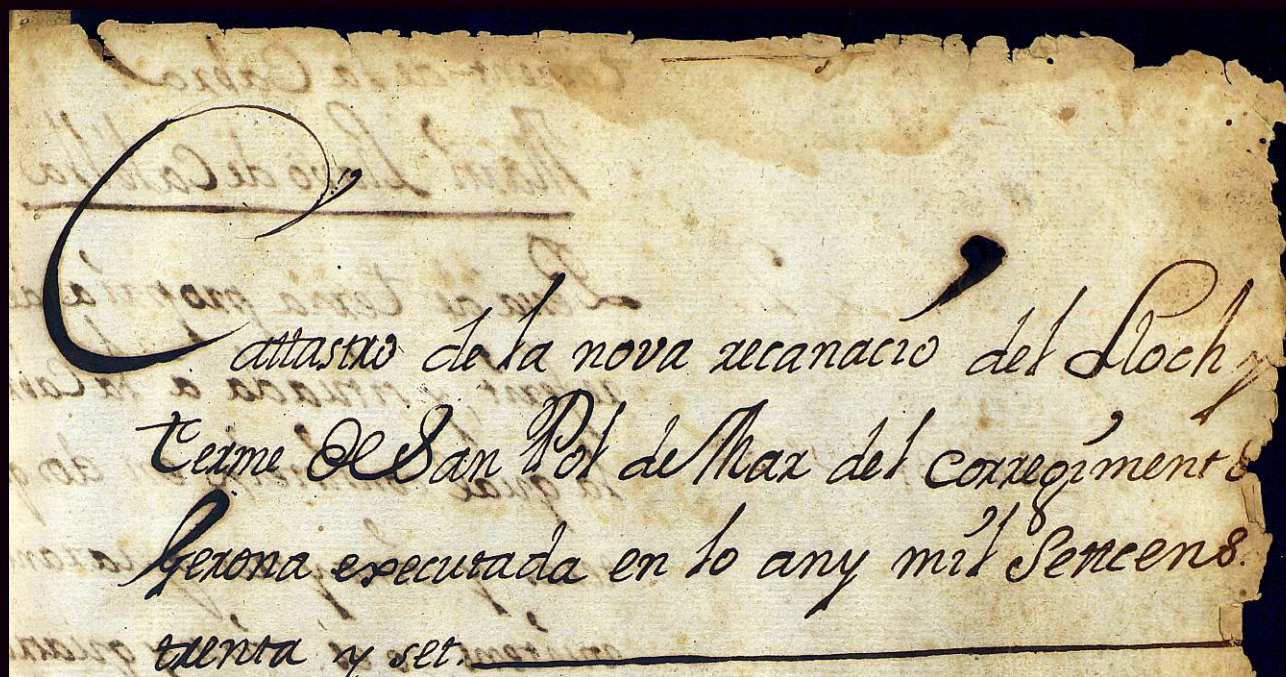 Cattastro de la nova recanació del Lloch y
terme de San Pol de Mar del corregiment
Gerona executada en lo any mil Settcens.
trenta y set.